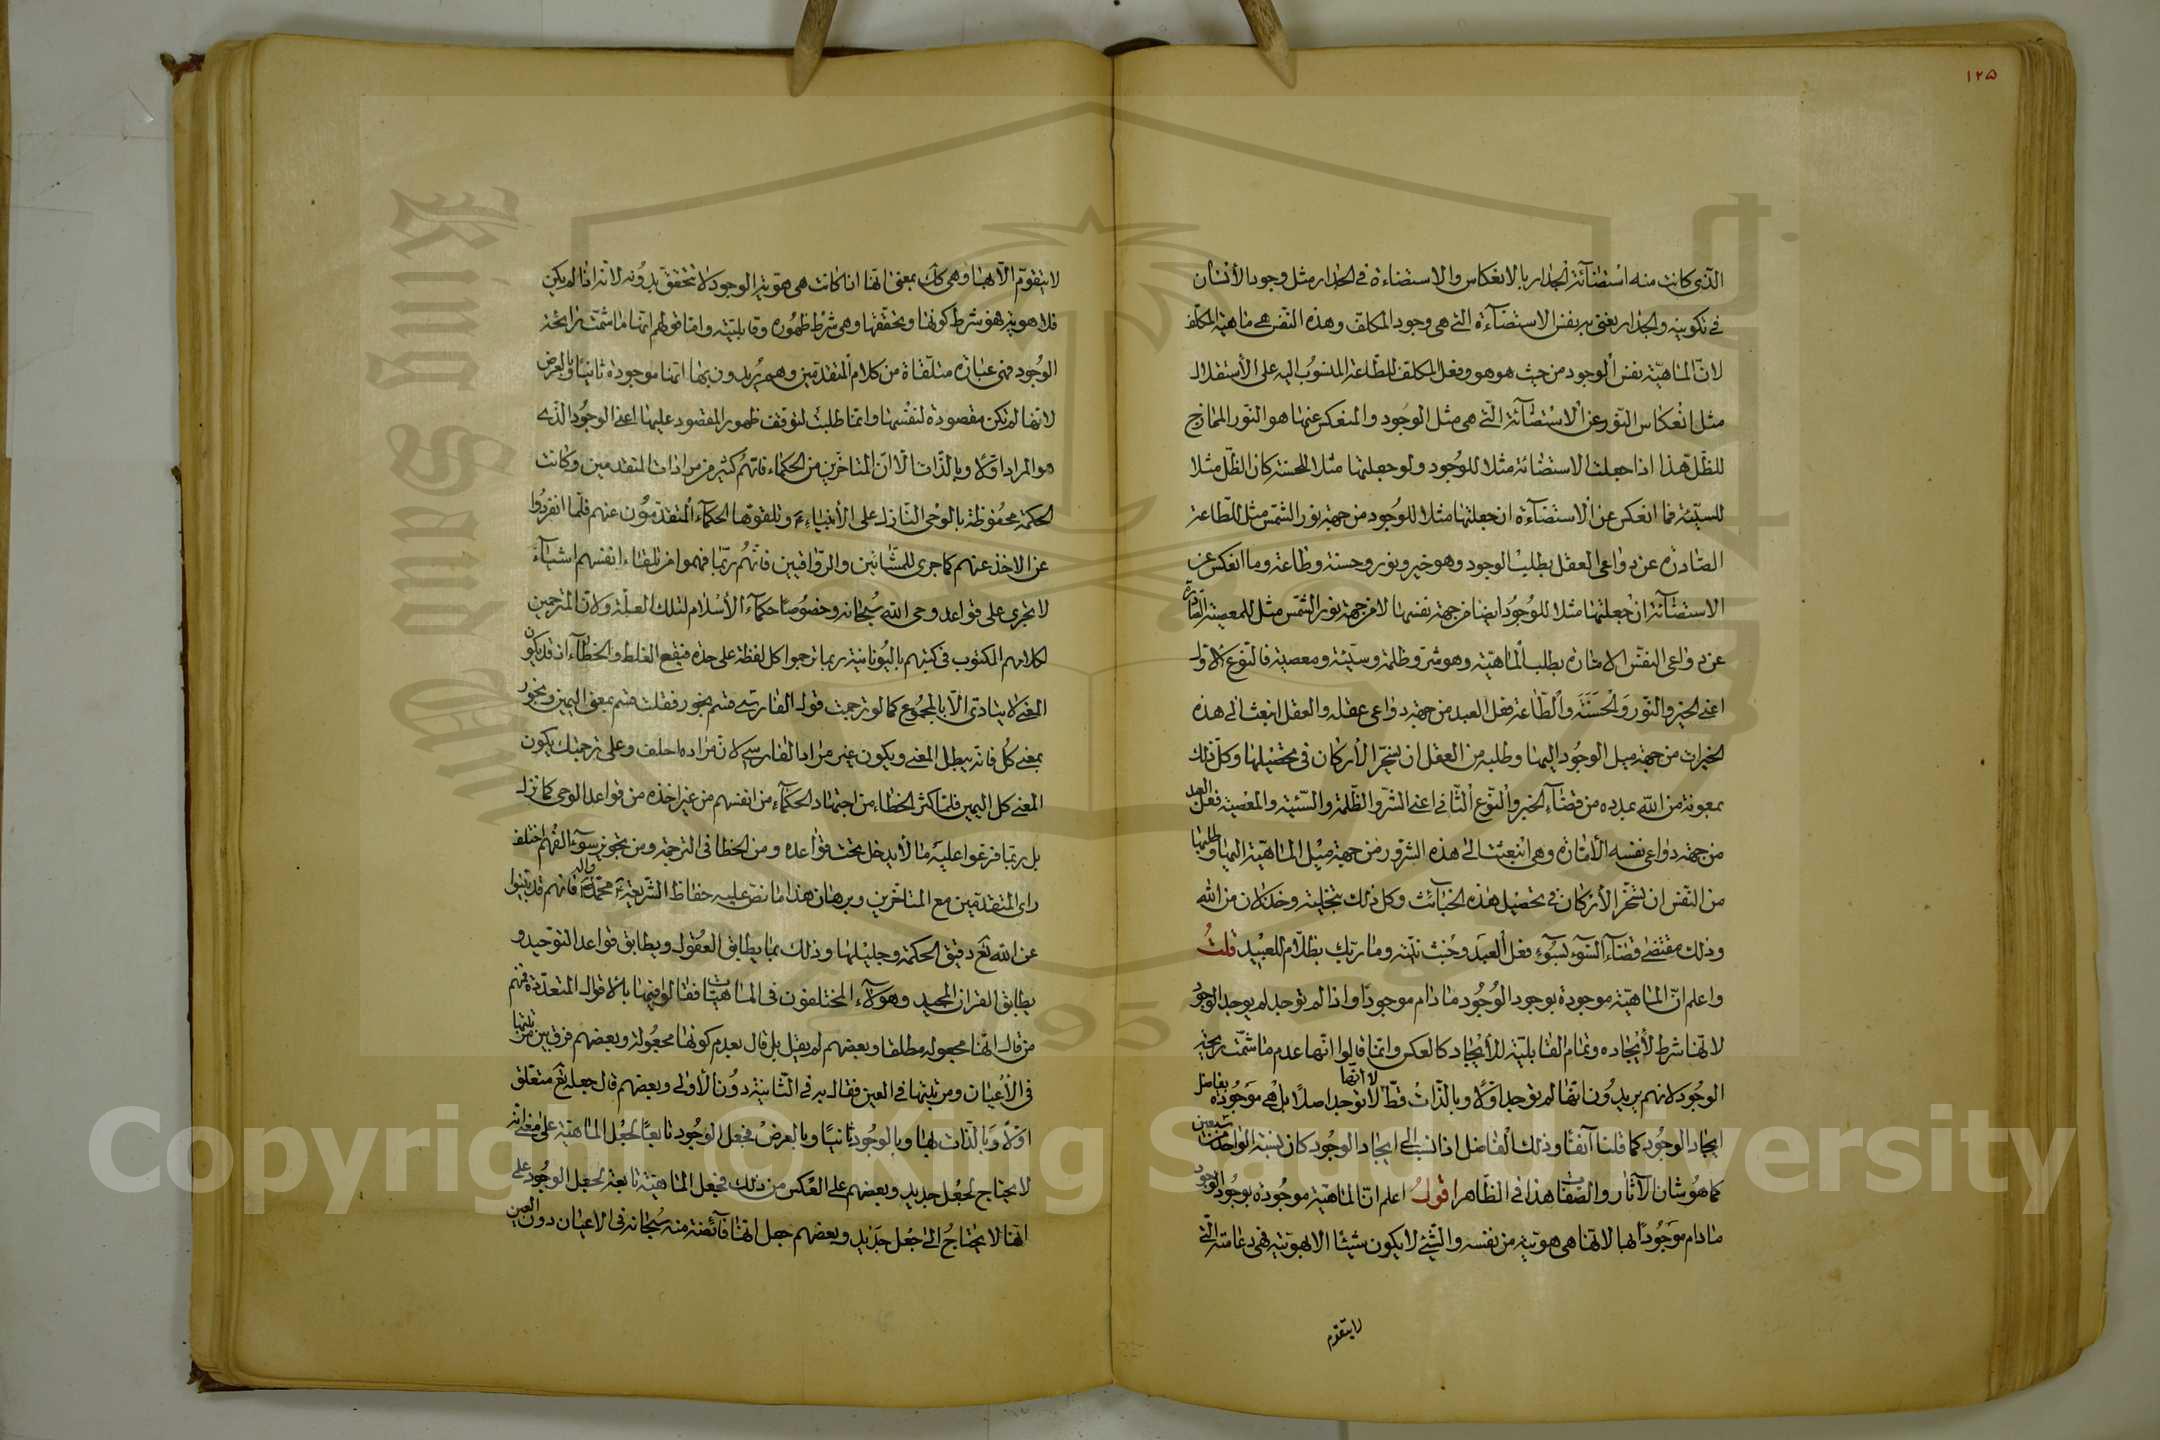 ١٢٥
الذى كانت منه استضآئة الجدار بالانعكاس والاستضاءة فى الجدار مثل وجود الانسان
فى تكوينه والجدار يعنى به نفس الاستضآءة التى هى وجود المكلف وهذه النفس هى ماهية المكلف
لان الماهيّة نفس الوجود من حيث هو هو وفعل المكلف للطّاعة المنسوب اليه على الأستقلال
مثل انعكاس النّور عن الاستضآئة الّتى هى مثل الوجود والمنعكس عنها هو النّور الممازج
للظّل هذا اذا جعلت الاستضائة مثلا للوُجود ولو جعلتها مثلا للحسنة كان الظّل مثلا
للسيّئة فما انعكس عن الاستضآءة ان جعلتها مثلا للوُجود من جهة نور الشمس مثل للطّاعة
الصّادرة عن دواعى العقل بطلب الوجود وهو خير ونور وحسنة وطاعة وما انعكس عن
الاستضآئة ان جعلتها مثلا للوُجُود ايضا من جهة نفسها لا من جهة نور الشّمس مثل للمعصية الصّادرة
عن دواعى النفس الامّارة بطلب الماهيّة وهو شرّ وظلمة وسيّئة ومعصية فالنّوع الاوّل
اعنى الخير والنّور وَالحَسَنَة والطّاعة فعل العبد من جهة دواعى عقله والعقل انبعث الى هذه
الخيرات من جهة ميل الوجُود اليها وطلبه من العقل ان يسخّر الأركان فى تحصيلها وكلّ ذلك
بمعونة من اللّه بمدده من قضآء الخير والنّوع الثّانى اعنى الشّر والظّلمة والسّيّئة والمعصية فعل العبد
من جهة دواعى نفسه الأمّارة وهى انبعثت الى هذه الشّرور من جهة ميل الماهيّة اليها وطلبها
من النّفس ان تسخّر الأركان فى تحصيل هذه الخبآئث وكل ذلك بتخلية وخذلان من اللّه
وذلك مقتضى قضآء السّوء بسُوء فعل العبد وخبث نيّته وما ربّك بظلّام للعبيد قلتُ
واعلم انّ الماهيّة موجودة بوجود الوُجُود ما دام موجودًا واذا لم توجد لم يوجد الوجود
لانّها شرط لأيجاده وتمام القابليّة للأيجاد كالعكس وانّما قالوا انّها عدم ما شمّت ريحة
الوجُود لانهم يريدُون انّها لم توجد اوّلًا وبالذّات قطّ لا انّها لا توجد اصلًا بل هى موجُودة بفاضل
ايجاد الوجُود كما قلنا آنفًا وذلك الفاضل اذا نسب الى ايجاد الوجُود كان نسبة الواحد من سبعين
كما هُو شان الآثار والصّفات هذا فى الظّاهر اقولُ اعلم انّ الماهيّة موجُودة بوجُود الوجود
ما دام موجُودًا لها لانّها هى هويّته من نفسه والشّئ لا يكون شيئًا الا بهويّته فهى دعامته الّتى
لايتقوم
لا يتقوّم الّا بها وهى كك بمعنى انّها اذا كانت هى هويّة الوجود لا تتحقق بدُونه لانّه اذا لم يكن
فلا هويّة فهو شرط كونها وتحقّقها وهى شرط ظهُوره وقابليّته وامّا قولهم انّها ما شمّت رائحة
الوُجود فهى عبارة متلقّاة من كلام المتقدّمين وهم يُريدون بها انّها موجودة ثانيًا وبالعرض
لانّها لم تكن مقصودة لنفسها وانّما طلبت لتوقّف ظهور المقصود عليها اعنى الوجُود الّذى
هو المراد اوّلا وبالذّات الّا انّ المتاخّرين من الحكماء فاتهُم كثير من مرادات المتقدمين وكانت
الحكمة محفُوظة بالوحى النّازل على الأنبياء ع وتلقوها الحكمآء المتقدّمُون عنهم فلمّا انفردُوا
عن الاخذ عنهم كما جرى للمشّائين والرّواقيين فانّهُم ربّما فهموا من تلقاء انفسهم اشيآء
لا تجرى على قواعد وحى اللّه سُبحانه وخصُوصًا حكمآء الأسلام لتلك العلّة ولان المترجمين
لكلامهم المكتوب فى كتبهم باليُونانية ربما ترجموا كل لفظة على حدة فيقع الغلط والخطآء اذ قد يكون
المعنى لا يتادّى الّا بالمجموع كما لو ترجمت قول الفارسى قسم بخور فقلت قسم بمعنى اليمين وبخور
بمعنى كُل فانّه يبطل المعنى ويكون غير مراد الفارسى لان مراده احلف وعلى ترجمتك يكون
المعنى كل اليمين فلذا كثر الخطاء من اجتهاد الحكمآء من انفسهم من غير اخذه من قواعد الوحى كما نزل
بل ربّما فرغوا عليه ما لا يدخل تحت قواعده ومن الخطا فى الترجمة ومن تجويز سوٓء الفهم اختلف
راى المتقدّمين مع المتاخّرين وبرهان هذا ما نصّ عليه حفاظ الشّريعة محمّد وآله فانّهم قد بيّنوا
عن اللّه تع دقيق الحكمة وجليلها وذلك بما يطابق العُقول ويطابق قواعد التوحيد و
يطابق القران المجيد وهؤلآء المختلفون فى الماهيّات فقالوا فيها بالاقوال المتعدّدة فمنهم
من قال انّها مجعولة مطلقا وبعضهم لم يقل بل قال بعدم كونها مجعُولة وبعضهم فرق بين مرتبتها
فى الأعيان ومرتبتها فى العين فقال به فى الثّانية دُون الأولى وبعضهم قال جعله تع متعلّق
اوّلًا وبالذّات بها وبالوجُود ثانيًا وبالعرض فجعل الوجُود تابعًا لجعل الماهيّة على معنى انّه
لا يحتاج لجعل جديد وبعضهم على العكس من ذلك فجعل الماهيّة تابعة لجعل الوجُود على
انّها لا يحتاجُ الى جعل جديد وبعضهم جعل انّها فآئضة منه سُبحانه فى الاعيان دون العين